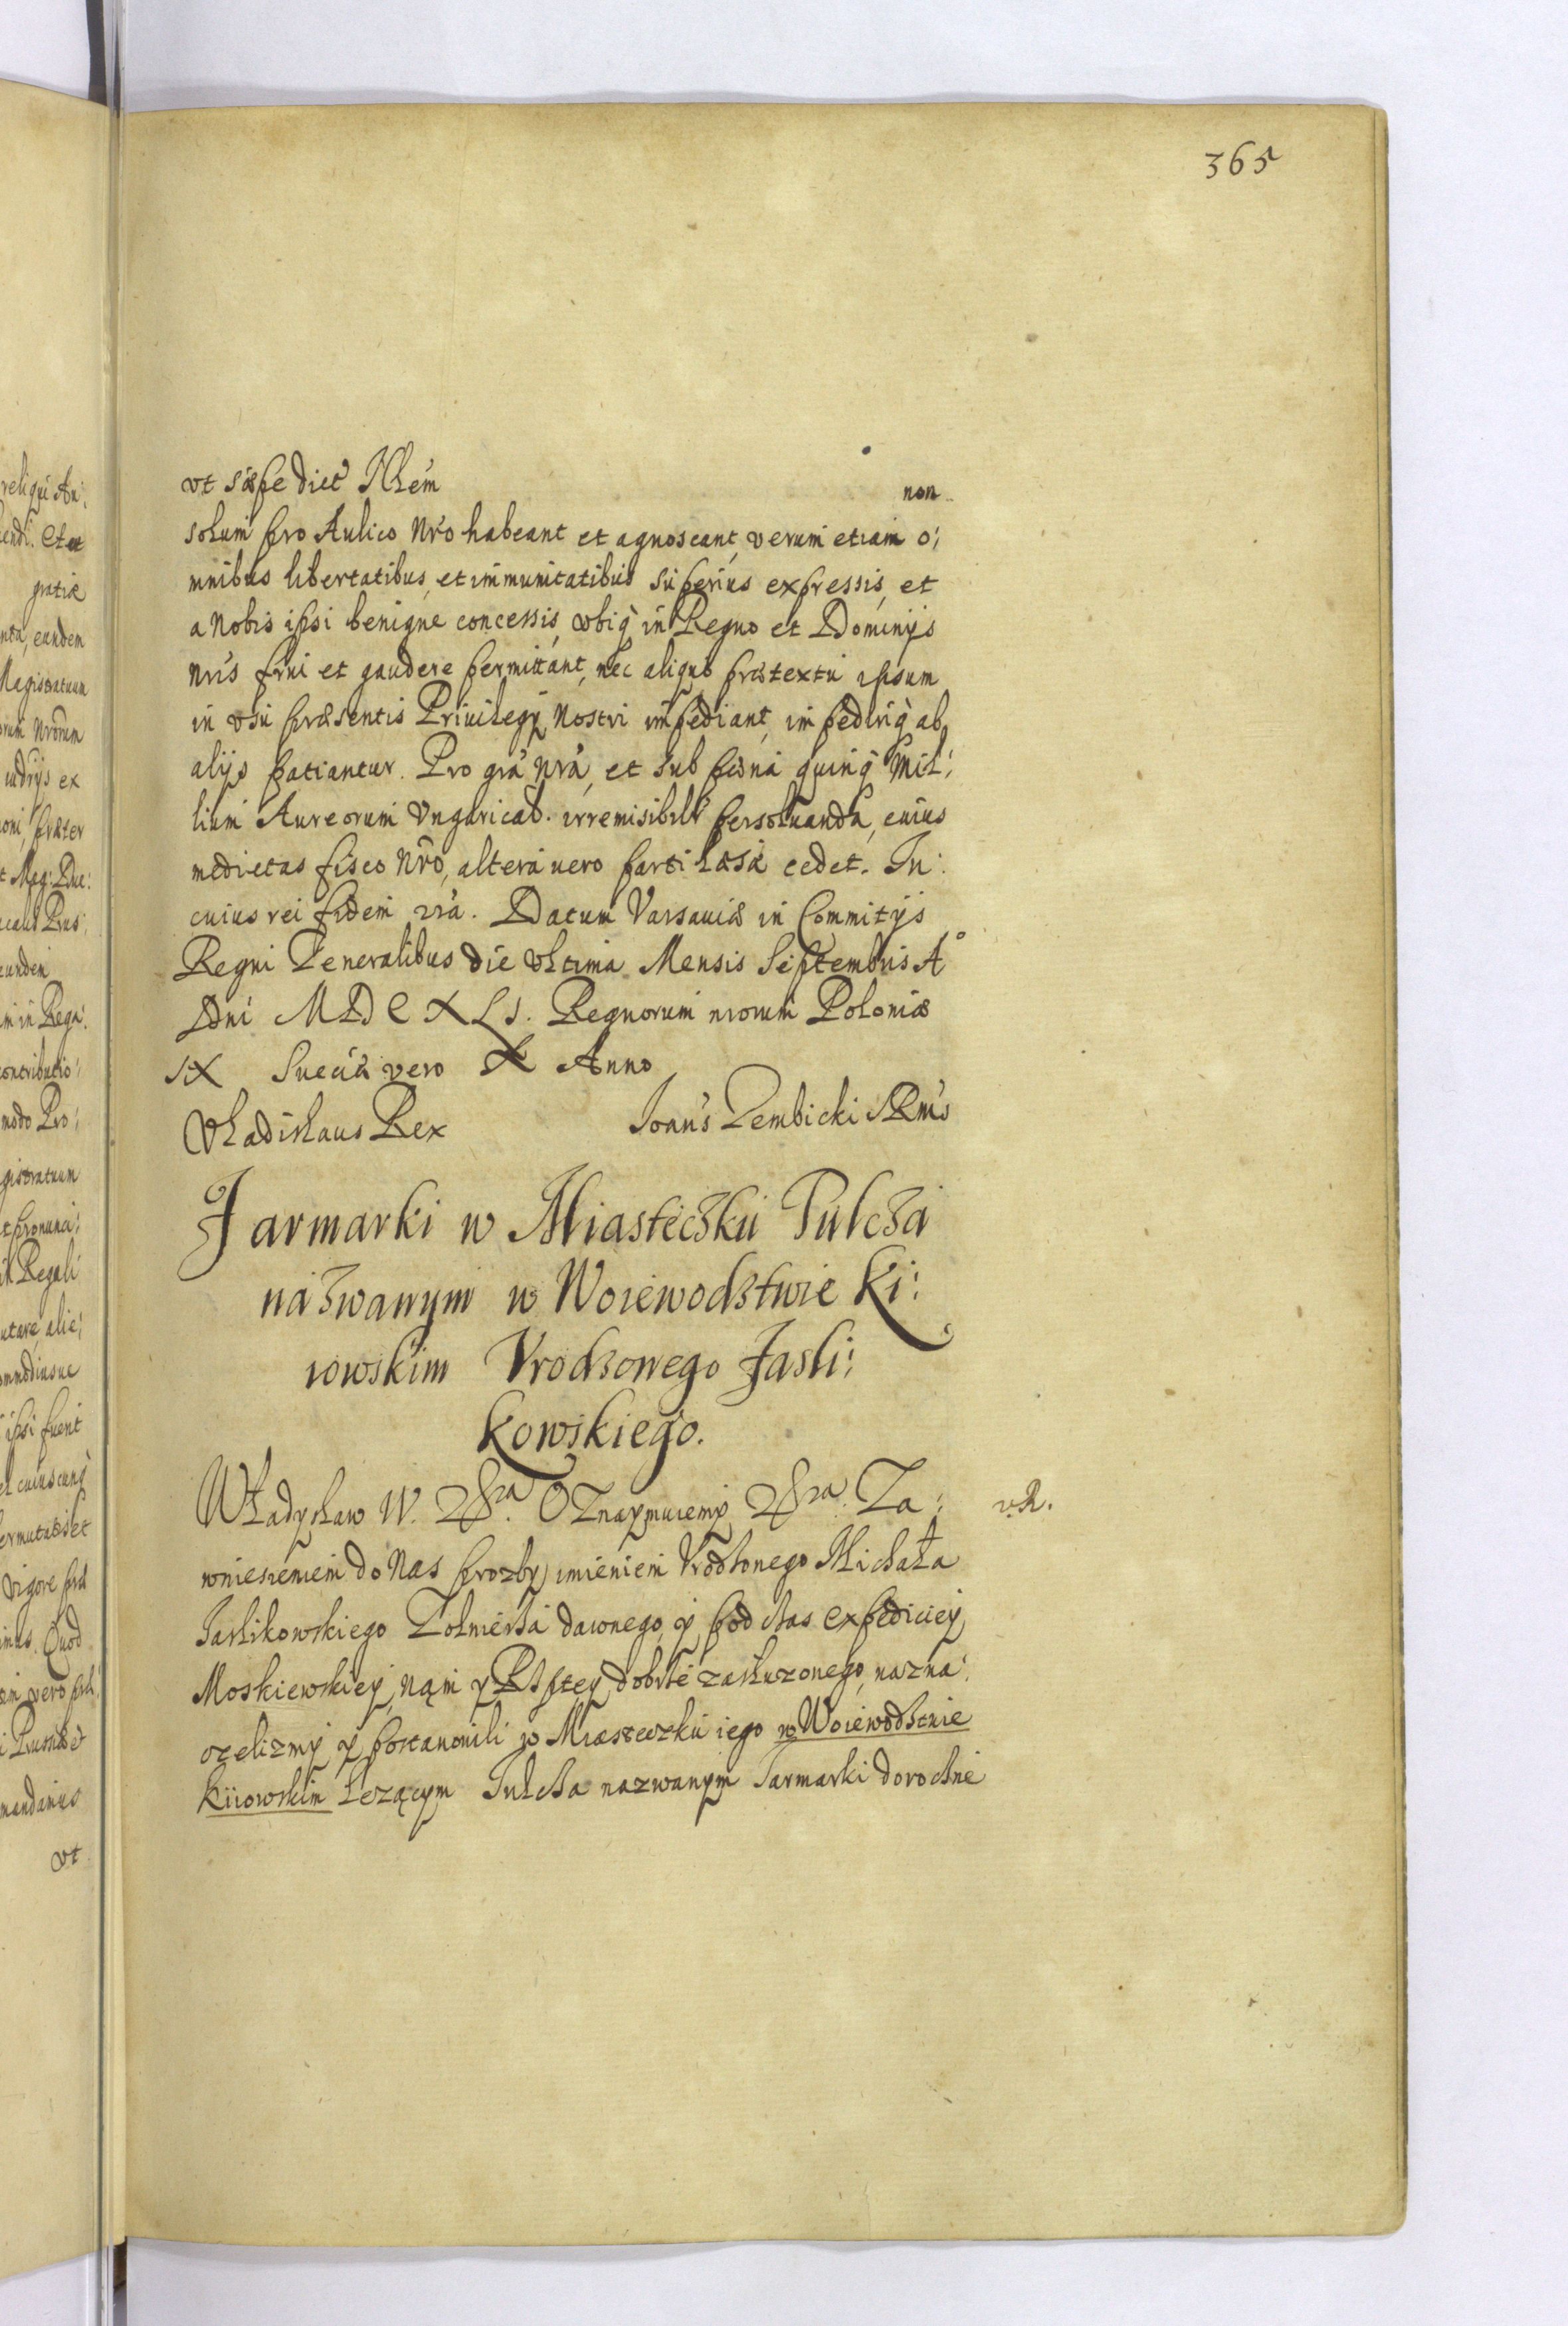 365
vt sæpe dict' Nhem̃ non
solum pro Aulico Nr̃o habeant et agnoscant, verum etiam o:
mnibus libertatibus, et immunitatibus superius expressis, et
a Nobis ipsi benigne concessis, vbiq̃ in Regno et Dominijs
Nris frui et gaudere permittant, nec aliquo prætextu ipsum
in vsu præsentis Priuilegij Nostri impediant, impediriq̃ ab
alijs patiantur. Pro gr̃a Nr̃a, et sub pœna quinq̃ Mil:
lium Aureorum Vngarical. irremisibilr̃ persoluanda, cuius
medietas fisco Nr̃o, altera uero parti læsæ cedet. In:
cuius rei fidem 2ra. Datum Varsauiæ in Commitijs
Regni Generalibus die vltima Mensis Septembris A°
Dni MDCXLI. Regnorum nrorum Poloniæ
IX Sueciæ vero X Anno
Vladislaus Rex Joan's Gembicki SRM's
Jarmarki w Miasteczku Tulcza
nazwanym w Woiewodztwie Ki:
iowskim Vrodzonego Jasli:
kowskiego.
Władysław IV. 2&ra. Oznaymuiemy 2&ra. Za: v.R.
wniesieniem do Nas prozby imieniem Vrodzonego Michała
Jaslikowskiego Zołnierza dawnego, y pod czas expediciey
Moskiewskiey, nąm y RPPtey dobrze zasłuzonego, nazna:
czelizmy y postanowili w Miasteczku iego w Woiewodztwie
Kiiowskim lezącym Tulcza nazwanym Jarmarki doroczne
religi Au:
endi. Et ut
gratiæ
nta, eundem
Magistratuum
orum Nrorum
udijs ex
oni, præter
t Mag: Duc:
eunden
m in Rega:
contributio:
modo Pro:
gistratuum
t pronunci:
in Regali
utare, alie:
ommodiusue
ipsi fuerit
el cuiuscunq̃
permutatis et
vigore præ
imus. Quod
em vero
mandamus
vt